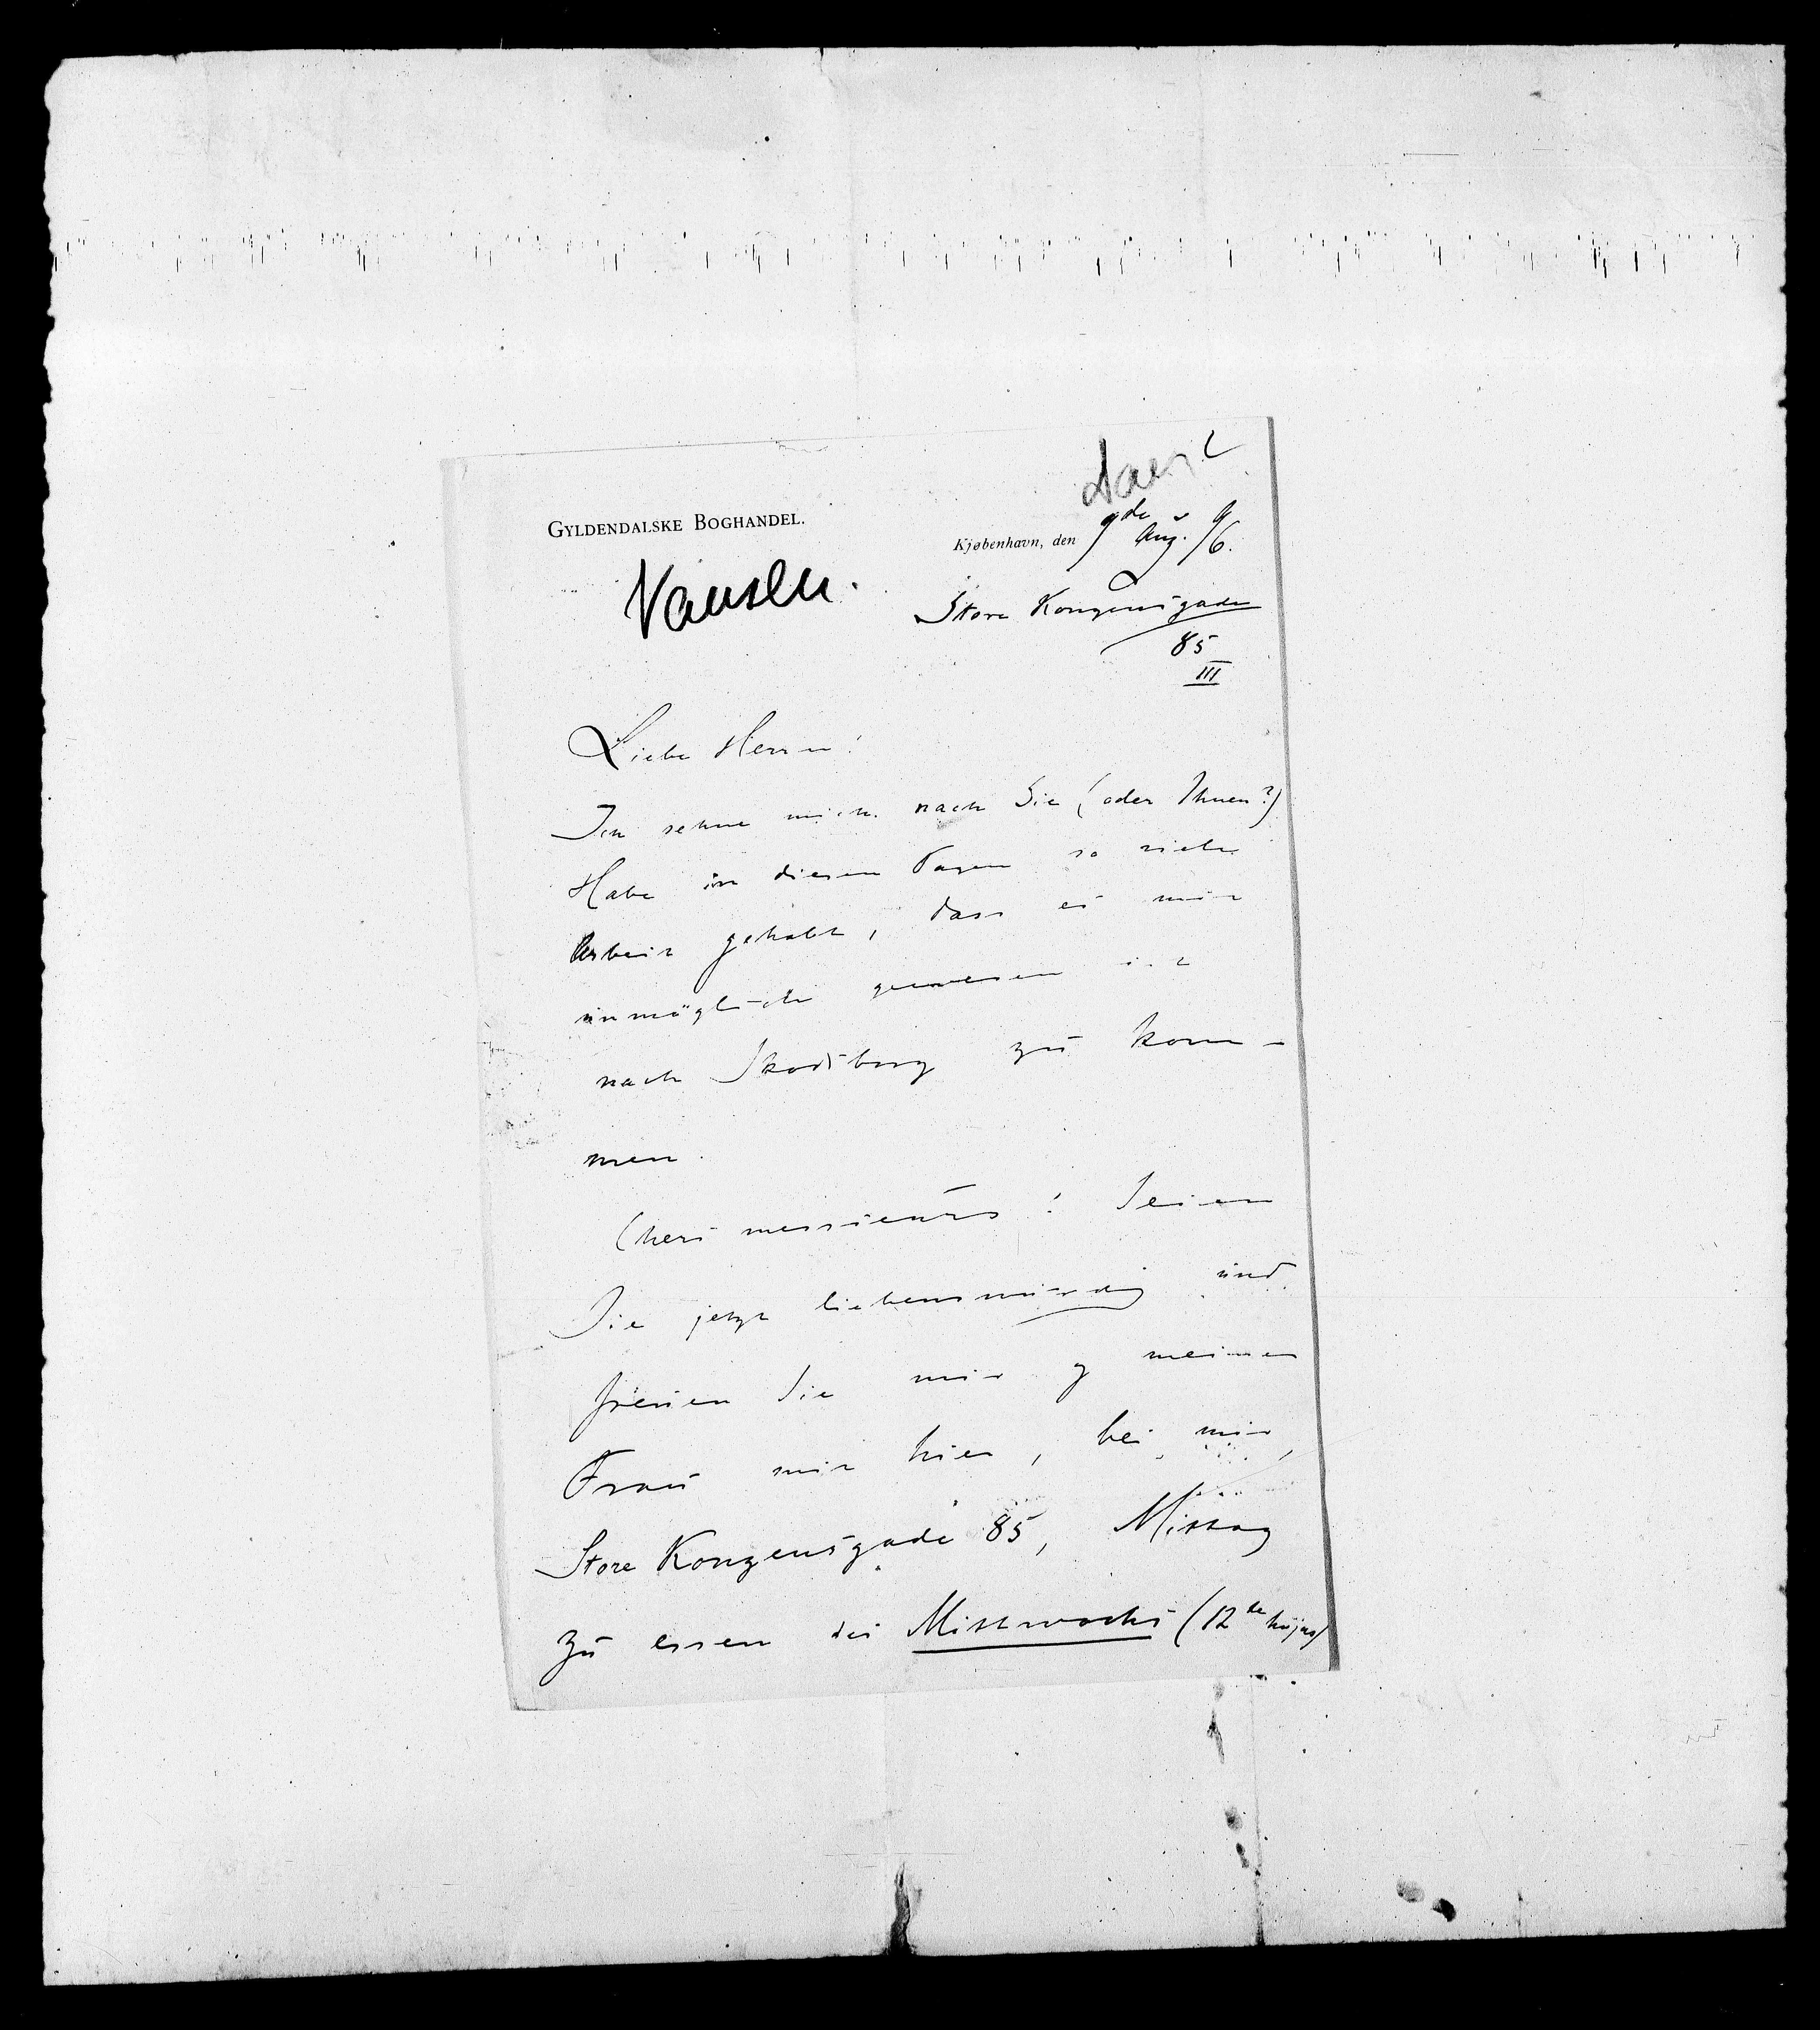 GYLDENDALSKE BOGHANDEL.
Kjøbenhavn, den 9de Aug. 96.
Nansen.
Store Kongensgade
85
III
Liebe Herrn!
Ich sehne mich nach Sie (oder Ihnen?)
Habe in diesen Tagen so viele
Arbeit gehabt, dass es mir
unmöglich gewesen ist
nach Skodsborg zu kom-
men.
Chers messieurs! Seien
Sie jetzt liebenswürdig und
freuen Sie mir g meiner
Frau mir hier, bei mir,
Store Kongensgade 85, Mittag
zu essen des Mittwochs (12te